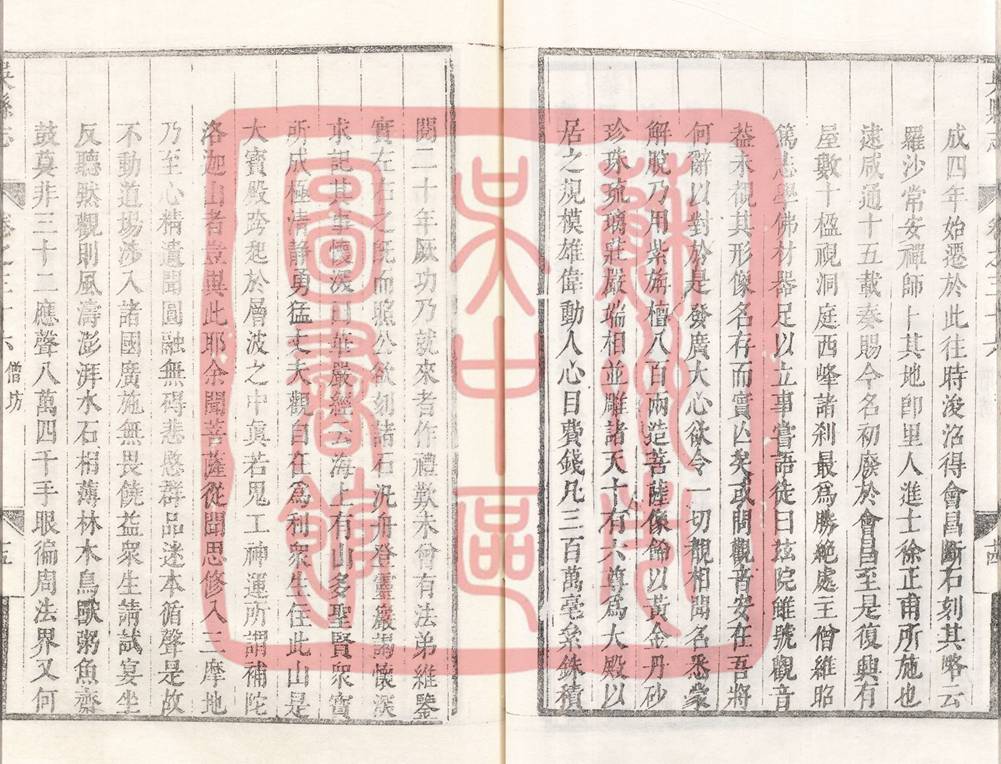 成四年始遷於此往時浚沼得會昌斷石刻其略云
羅沙常安禪師卜其地卽里人進士徐正甫所施也
逮咸通十五載奏賜今名初廢於會昌至是復興有
屋數十楹視洞庭西峰諸刹最爲勝絶處主僧維昭
篤志學佛材器足以立事嘗語徒曰茲院雖號觀音
葢未覩其形像名存而實亾矣或問觀音安在吾將
何辭以對於是發廣大心欲令一切觀相聞名悉蒙
解脫乃用紫旃檀八百兩造菩薩像飾以黃金丹砂
珍珠琉璃莊嚴瑞相並雕諸天十有六尊爲大殿以
居之規模雄偉動人心目費錢凡三百萬毫絫銖積
閱二十年厥功乃就來者作禮歎未曾有法弟維鑒
實左右之旣而照公欲刻諸石汎舟登靈巖謁懷深
求記其事懷深曰華嚴經云海上有山多聖賢衆寶
所成極淸靜勇猛丈夫觀自在爲利衆生住此山是
大寶殿跨起於層波之中眞若鬼工神運所謂補陀
洛迦山者豈異此耶余聞菩薩從聞思修入三摩地
乃至心精遺聞圓融無碍悲愍群品迷本循聲是故
不動道場涉入諸國廣施無畏饒益衆生請試宴坐
反聽默觀則風濤澎湃水石相薄林木鳥獸粥魚齋
鼓莫非三十二應聲八萬四千手眼徧周法界又何
吳縣志
卷之三十六
僧坊
十五
吳縣志
卷之三十六
十四
蘇州市
吳中區
圖書館